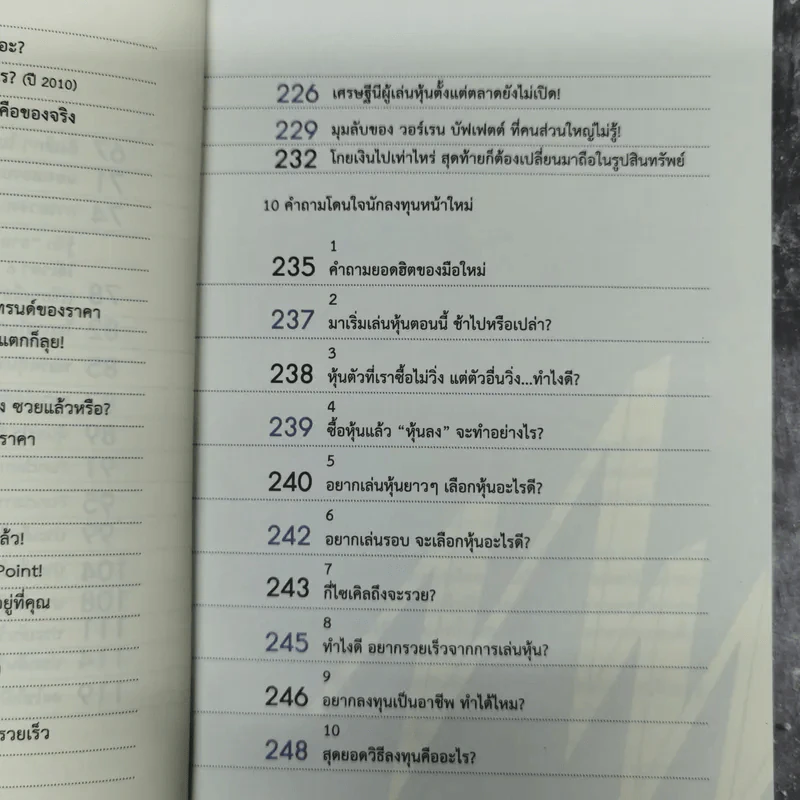 อะ?
ร? (ปี 2010)
คือของจริง
ทรนด์ของราคา
แตกก็ลุย!
ง ซวยแล้วหรือ?
ราคา
ล้ว!
Point!
อยู่ที่คุณ
รวยเร็ว
226 เศรษฐีนีผู้เล่นหุ้นตั้งแต่ตลาดยังไม่เปิด!
229 มุมลับของ วอร์เรน บัฟเฟตต์ ที่คนส่วนใหญ่ไม่รู้!
232 โกยเงินไปเท่าไหร่ สุดท้ายก็ต้องเปลี่ยนมาถือในรูปสินทรัพย์
10 คำถามโดนใจนักลงทุนหน้าใหม่
1
235 คำถามยอดฮิตของมือใหม่
2
237 มาเริ่มเล่นหุ้นตอนนี้ ช้าไปหรือเปล่า?
3
238 หุ้นตัวที่เราซื้อไม่วิ่ง แต่ตัวอื่นวิ่ง...ทำไงดี?
4
239 ซื้อหุ้นแล้ว “หุ้นลง” จะทำอย่างไร?
5
240 อยากเล่นหุ้นยาวๆ เลือกหุ้นอะไรดี?
6
242 อยากเล่นรอบ จะเลือกหุ้นอะไรดี?
7
243 กี่ไซเคิลถึงจะรวย?
8
245 ทำไงดี อยากรวยเร็วจากการเล่นหุ้น?
9
246 อยากลงทุนเป็นอาชีพ ทำได้ไหม?
10
248 สุดยอดวิธีลงทุนคืออะไร?